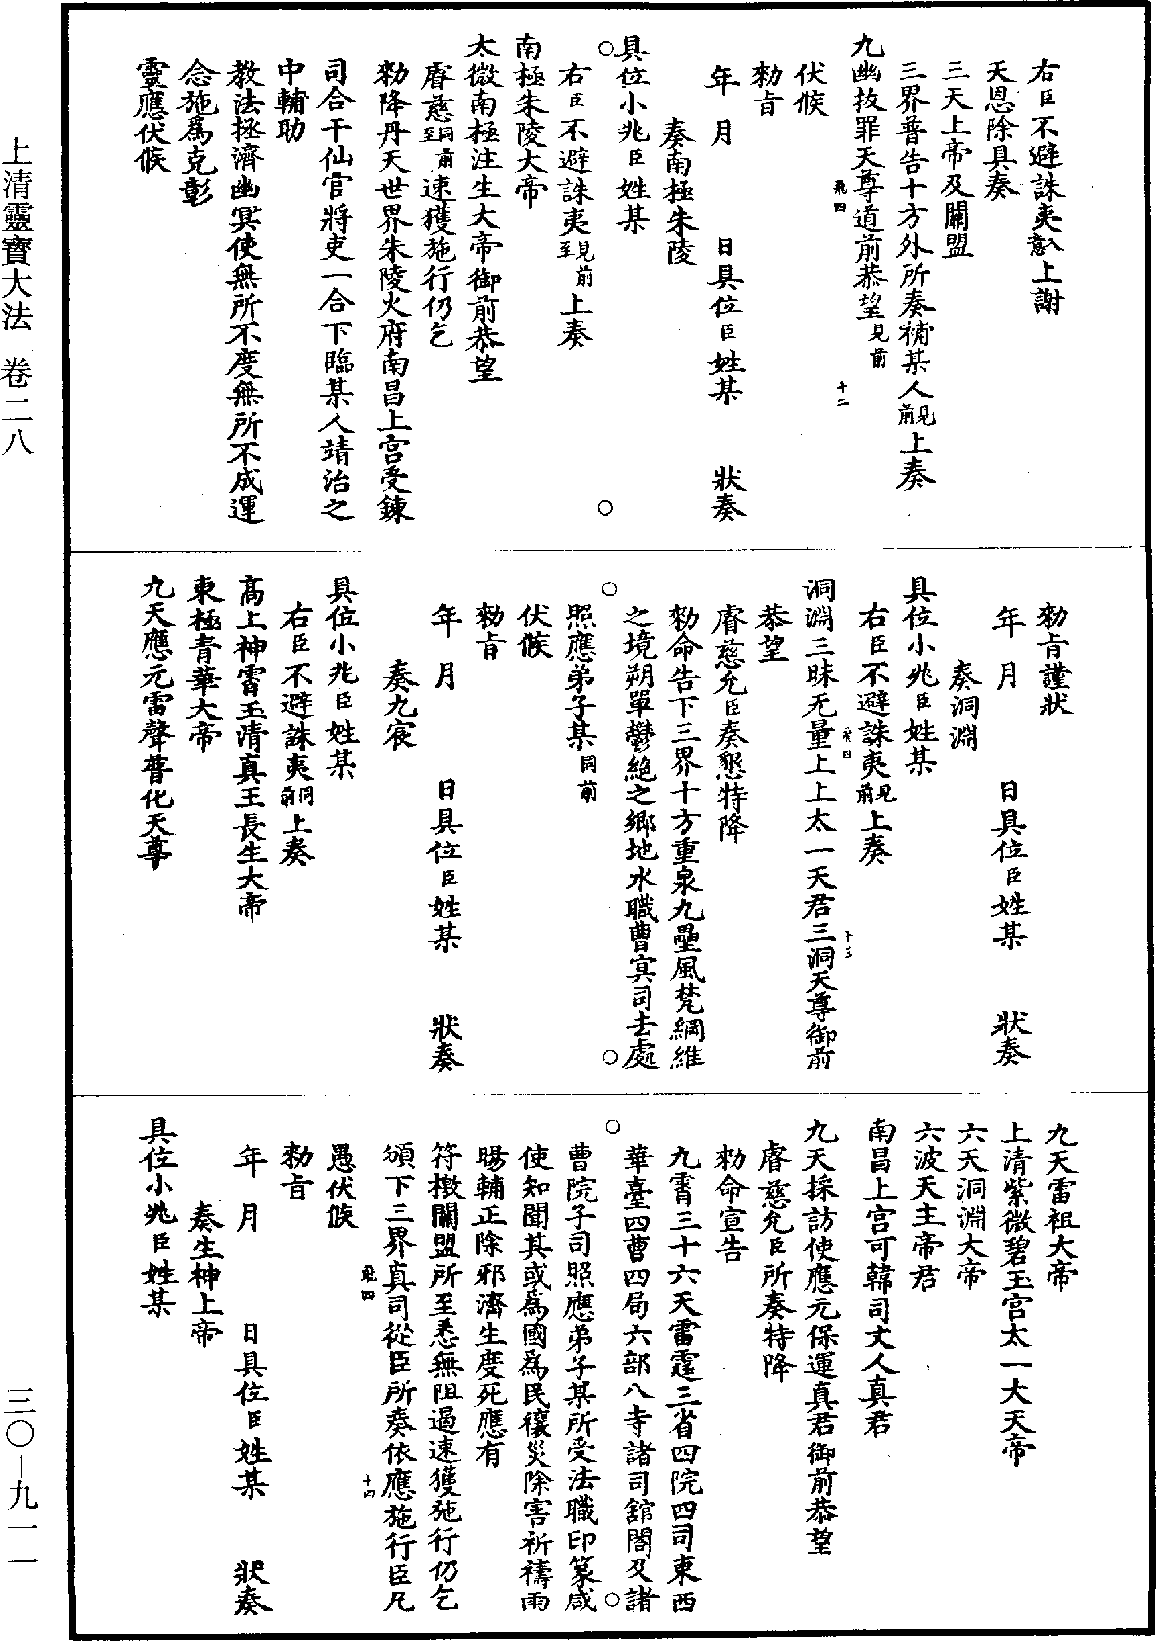 上清靈寶大法　卷二八
三〇—九一一
右臣不避誅夷云云上謝
天恩除具奏
三天上帝及關盟
三界普告十方外所奏補某人見前上奏
九幽拔罪天尊道前恭望見前
伏候
勑旨
年　月　日具位臣姓某　狀奏
奏南極朱陵
具位小兆臣姓某
右臣不避誅夷至見前上奏
南極朱陵大帝
太微南極注生大帝御前恭望
睿慈至同前速獲施行仍乞
勑降丹天世界朱陵火府南昌上宮受鍊
司合干仙官將吏一合下臨某人靖治之
中輔助
教法拯濟幽冥使無所不度無所不成運
念施爲克彰
靈應伏候
勑旨謹狀
年　月　日具位臣姓某　狀奏
奏洞淵
具位小兆臣姓某
右臣不避誅夷見前上奏
洞淵三昧无量上上太一天君三洞天尊御前
恭望
睿慈允臣奏懇特降
勑命告下三界十方重泉九壘風梵綱維
之境朔單鬱絶之鄉地水職曹冥司去處
照應弟子某同前
伏候
勑旨
年　月　日具位臣姓某　狀奏
奏九宸
具位小兆臣姓某
右臣不避誅夷同前上奏
高上神霄玉清真王長生大帝
東極青華大帝
九天應元雷聲普化天尊
九天雷祖大帝
上清紫微碧玉宮太一大天帝
六天洞淵大帝
六波天主帝君
南昌上宮可韓司丈人真君
九天採訪使應元保運真君御前恭望
睿慈允臣所奏特降
勑命宣告
九霄三十六天雷霆三省四院四司東西
華臺四曹四局六部八寺諸司舘閣及諸
曹院子司照應弟子某所受法職印篆咸
使知聞其或爲國爲民禳災除害祈禱雨
暘輔正除邪濟生度死應有
符檄關盟所至悉無阻遏速獲施行仍乞
頒下三界真司從臣所奏依應施行臣凡
愚伏候
勑旨
年　月　日具位臣姓某　狀奏
奏生神上帝
具位小兆臣姓某